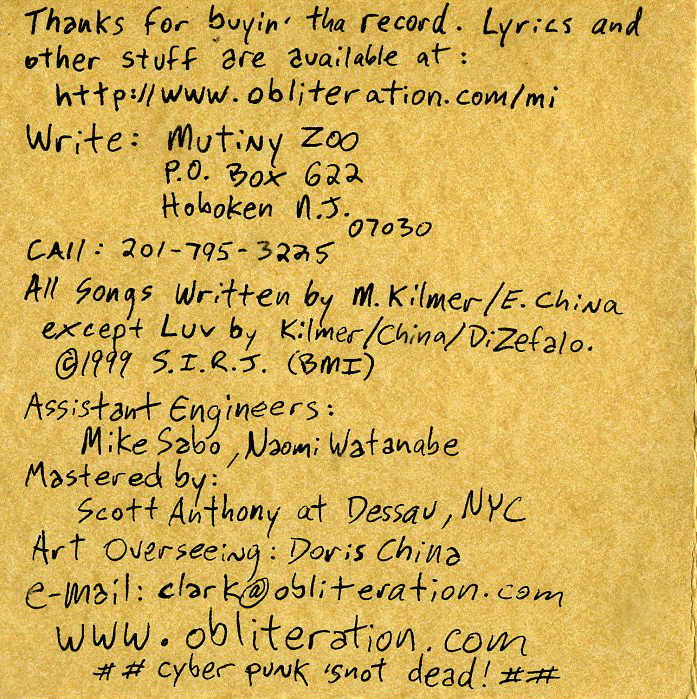 Thanks for buyin' tha record. Lyrics and
other stuff are available at:
http://www.obliteration.com/mi
Write: Mutiny Zoo
P.O. Box 622
Hoboken N.J.
07030
CAll: 201-795-3225
All Songs Written by M. Kilmer/E. China
except Luv by Kilmer/China/DiZefalo.
©1999 S.I.R.J. (BMI)
Assistant Engineers:
Mike Sabo, Naomi Watanabe
Mastered by:
Scott Anthony at Dessau, NYC
Art Overseeing: Doris China
e-mail: clark@obliteration.com
www.obliteration.com
## cyber punk 'snot dead! ##